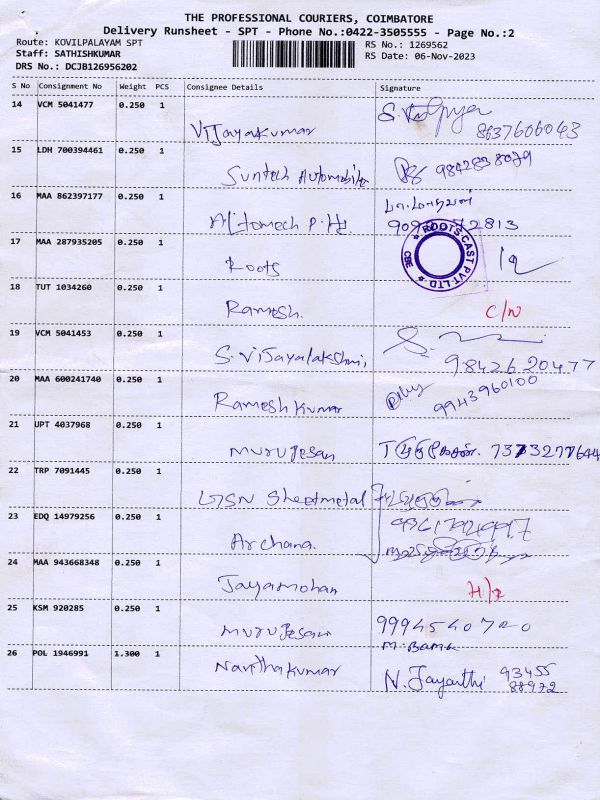 THE PROFESSIONAL COURIERS, COIMBATORE
Delivery Runsheet - SPT - Phone No.:0422-3505555 - Page No.:2
Route: KOVILPALAYAM SPT
RS No.: 1269562
Staff: SATHISHKUMAR
RS Date: 06-Nov-2023
DRS No.: DCJB126956202
S No Consignment No Weight PCS Consignee Details Signature
14 VCM 5041477 0.250 1
Vijayakumar 8637606043
15 LDH 700394461 0.250 1
Suntech Automobile
16 MAA 862397177 0.250 1
17 MAA 287935205 0.250 1
ROOTS CAST PVT LTD. CBE
Roots
18 TUT 1034260 0.250 1
Ramesh. C/N
19 VCM 5041453 0.250 1
S. Vijayalakshmi, 98426 20477
20 MAA 600241740 0.250 1
Ramesh Kumar 9943960100
21 UPT 4037968 0.250 1
Murugesan 7373277644
22 TRP 7091445 0.250 1
Sheetmetal
23 EDQ 14979256 0.250 1
Archana.
24 MAA 943668348 0.250 1
Jayamohan
25 KSM 920285 0.250 1
Murugesan 9994540720
M. Bama
26 POL 1946991 1.300 1
Navithakumar N. Jayanthi 93455
88972